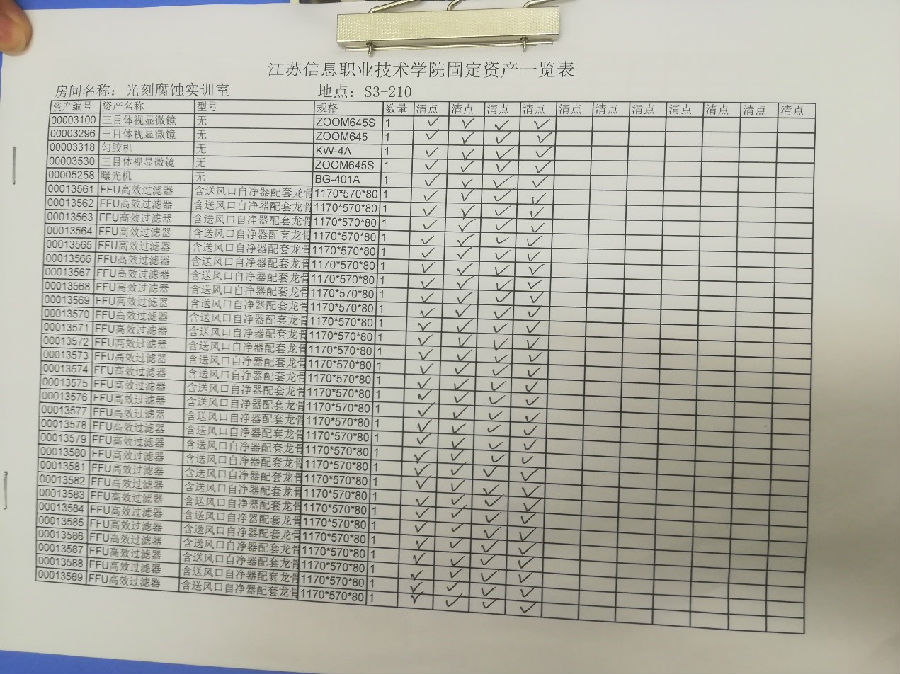 江苏信息职业技术学院固定资产一览表
房间名称：光刻腐蚀实训室 地点：S3-210
资产编号 资产名称 型号 规格 数量 清点 清点 清点 清点 清点 清点 清点 清点 清点 清点 清点
00003100 三目体视显微镜 无 ZOOM645S 1
00003296 三目体视显微镜 无 ZOOM645 1
00003318 匀胶机 无 KW-4A 1
00003530 三目体视显微镜 无 ZOOM645S 1
00005258 曝光机 无 BG-401A 1
00013561 FFU高效过滤器 含送风口自净器配套龙骨 1170*570*80 1
00013562 FFU高效过滤器 含送风口自净器配套龙骨 1170*570*80 1
00013563 FFU高效过滤器 含送风口自净器配套龙骨 1170*570*80 1
00013564 FFU高效过滤器 含送风口自净器配套龙骨 1170*570*80 1
00013565 FFU高效过滤器 含送风口自净器配套龙骨 1170*570*80 1
00013566 FFU高效过滤器 含送风口自净器配套龙骨 1170*570*80 1
00013567 FFU高效过滤器 含送风口自净器配套龙骨 1170*570*80 1
00013568 FFU高效过滤器 含送风口自净器配套龙骨 1170*570*80 1
00013569 FFU高效过滤器 含送风口自净器配套龙骨 1170*570*80 1
00013570 FFU高效过滤器 含送风口自净器配套龙骨 1170*570*80 1
00013571 FFU高效过滤器 含送风口自净器配套龙骨 1170*570*80 1
00013572 FFU高效过滤器 含送风口自净器配套龙骨 1170*570*80 1
00013573 FFU高效过滤器 含送风口自净器配套龙骨 1170*570*80 1
00013574 FFU高效过滤器 含送风口自净器配套龙骨 1170*570*80 1
00013575 FFU高效过滤器 含送风口自净器配套龙骨 1170*570*80 1
00013576 FFU高效过滤器 含送风口自净器配套龙骨 1170*570*80 1
00013577 FFU高效过滤器 含送风口自净器配套龙骨 1170*570*80 1
00013578 FFU高效过滤器 含送风口自净器配套龙骨 1170*570*80 1
00013579 FFU高效过滤器 含送风口自净器配套龙骨 1170*570*80 1
00013580 FFU高效过滤器 含送风口自净器配套龙骨 1170*570*80 1
00013581 FFU高效过滤器 含送风口自净器配套龙骨 1170*570*80 1
00013582 FFU高效过滤器 含送风口自净器配套龙骨 1170*570*80 1
00013583 FFU高效过滤器 含送风口自净器配套龙骨 1170*570*80 1
00013584 FFU高效过滤器 含送风口自净器配套龙骨 1170*570*80 1
00013585 FFU高效过滤器 含送风口自净器配套龙骨 1170*570*80 1
00013586 FFU高效过滤器 含送风口自净器配套龙骨 1170*570*80 1
00013587 FFU高效过滤器 含送风口自净器配套龙骨 1170*570*80 1
00013588 FFU高效过滤器 含送风口自净器配套龙骨 1170*570*80 1
00013589 FFU高效过滤器 含送风口自净器配套龙骨 1170*570*80 1